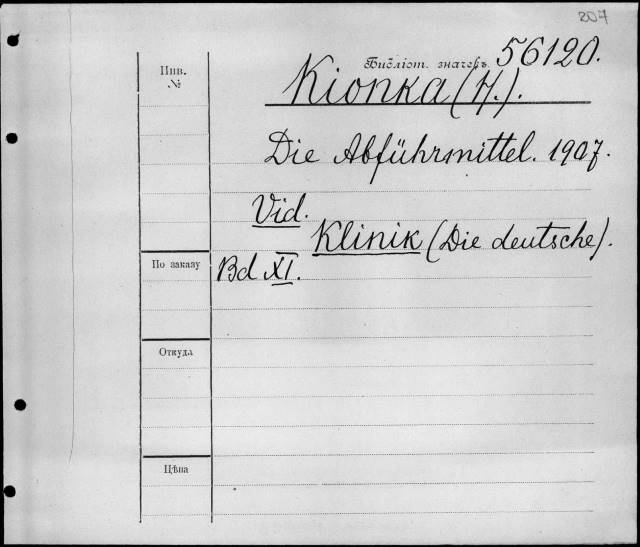 207
Инв.
№
Библіот. значекъ 56120.
Kionka (H.).
Die Abführmittel. 1907.
Vid.
Klinik (Die deutsche).
По заказу
Bd XI.
Откуда
Цѣна